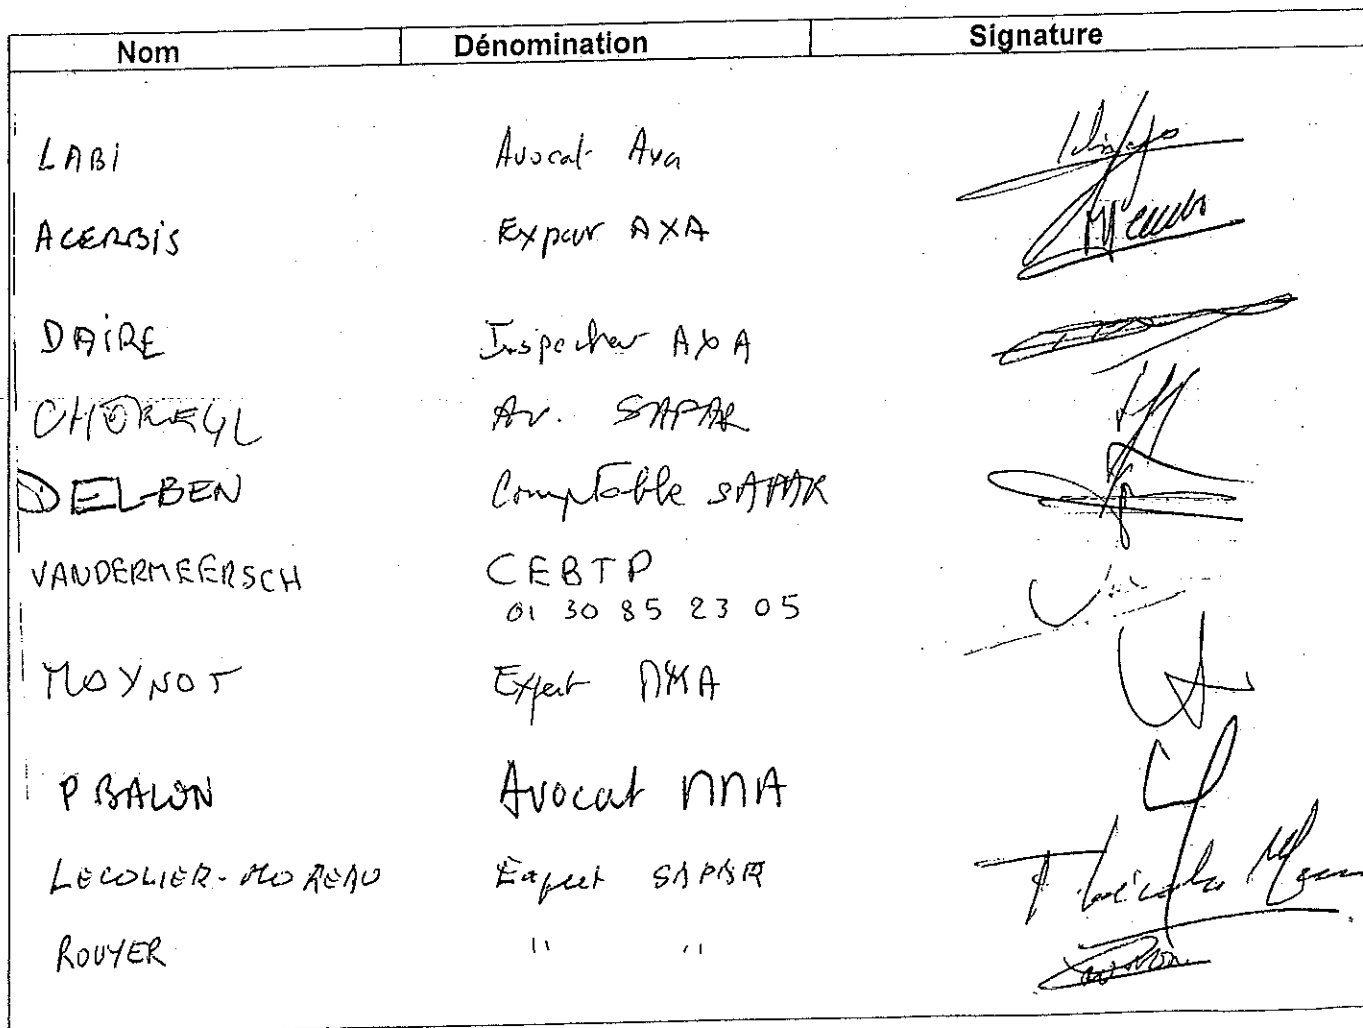 Nom Dénomination Signature
LABI Avocat Axa
ACERBIS Expert AXA
DAIRE Inspecteur AXA
Av. SAPAR
DEL-BEN Comptable SAPAR
VANDERMEERSCH CEBTP
01 30 85 23 05
MOYNOT Expert MMA
P BALON Avocat MMA
LECOLIER-MOREAU Expert SAPAR
ROUYER " "